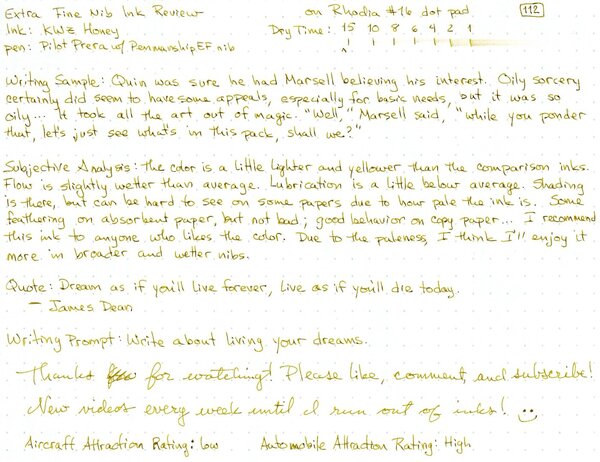 Extra Fine Nib Ink Review on Rhodia #16 dot pad 112
Ink: KWZ Honey Dry Time: 15 10 8 6 4 2 1
pen: Pilot Prera w/ Penmanship EF nib
Writing Sample: Quin was sure he had Marsell believing his interest. Oily sorcery
certainly did seem to have some appeals, especially for basic needs, but it was so
oily... It took all the art out of magic. "Well," Marsell said, "while you ponder
that, let's just see what's in this pack, shall we?"
Subjective Analysis: the color is a little lighter and yellower than the comparison inks.
Flow is slightly wetter than average. Lubrication is a little below average. Shading
is there, but can be hard to see on some papers due to how pale the ink is. Some
feathering on absorbent paper, but not bad; good behavior on copy paper... I recommend
this ink to anyone who likes the color. Due to the paleness, I think I'll enjoy it
more in broader and wetter nibs.
Quote: Dream as if you'll live forever, Live as if you'll die today.
- James Dean
Writing Prompt: Write about living your dreams.
Thanks for watching! Please like, comment, and subscribe!
New videos every week until I run out of inks!
Aircraft Attraction Rating: low Automobile Attraction Rating: High